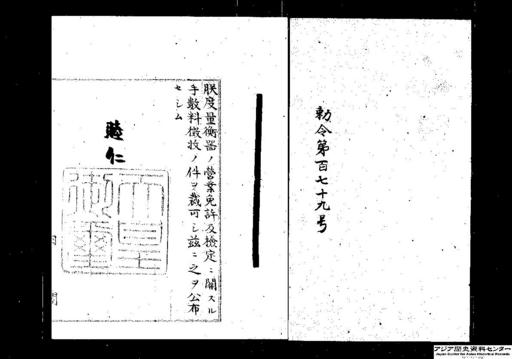 勅令第百七十九号
朕度量衡器ノ営業免許及検定ニ関スル
手数料徴収ノ件ヲ裁可シ茲ニ之ヲ公布
セシム
睦仁
天皇御璽
内
閣
アジア歴史資料センター
Japan Center for Asian Historical Records